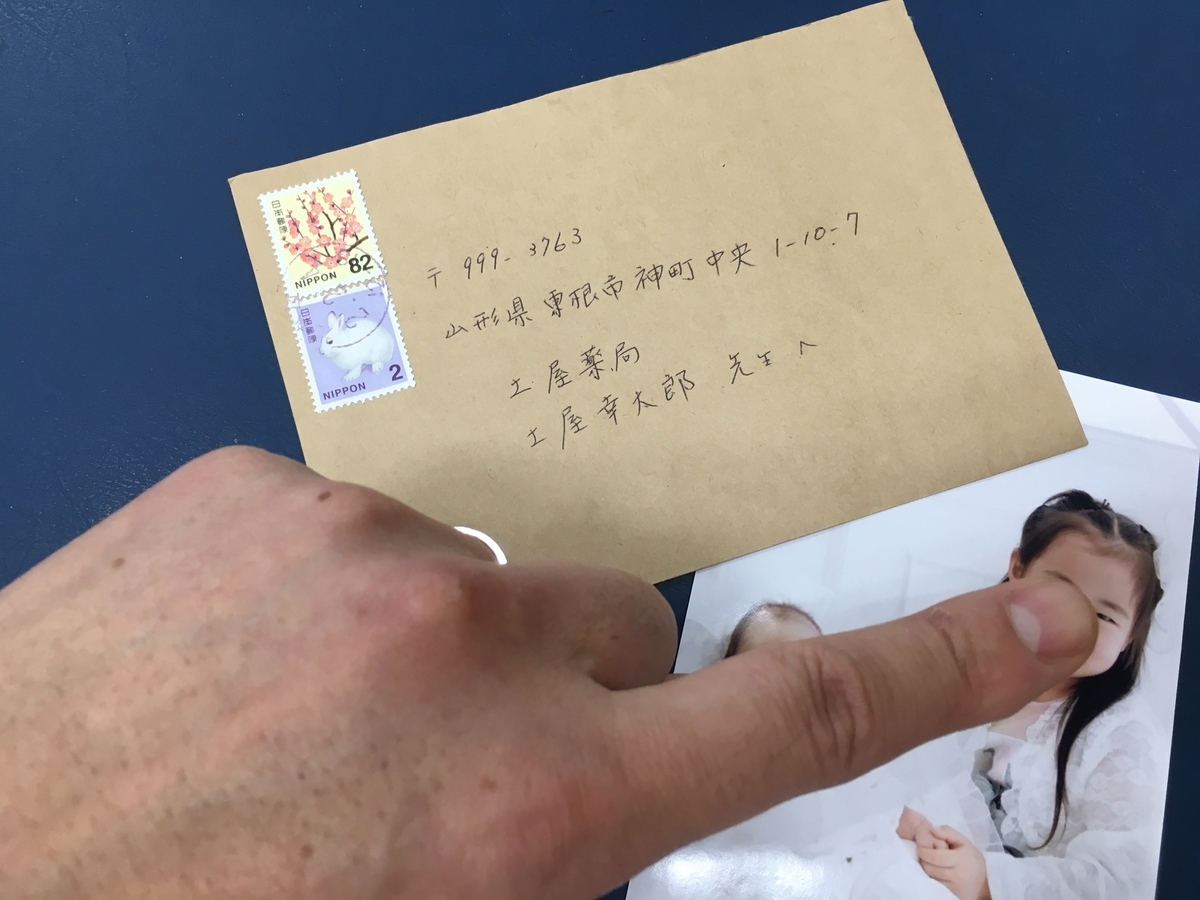 日本郵便
82
NIPPON
日本郵便
2
NIPPON
〒 999-3763
山形県東根市神町中央 1-10-7
土屋薬局
土屋幸太郎 先生 へ